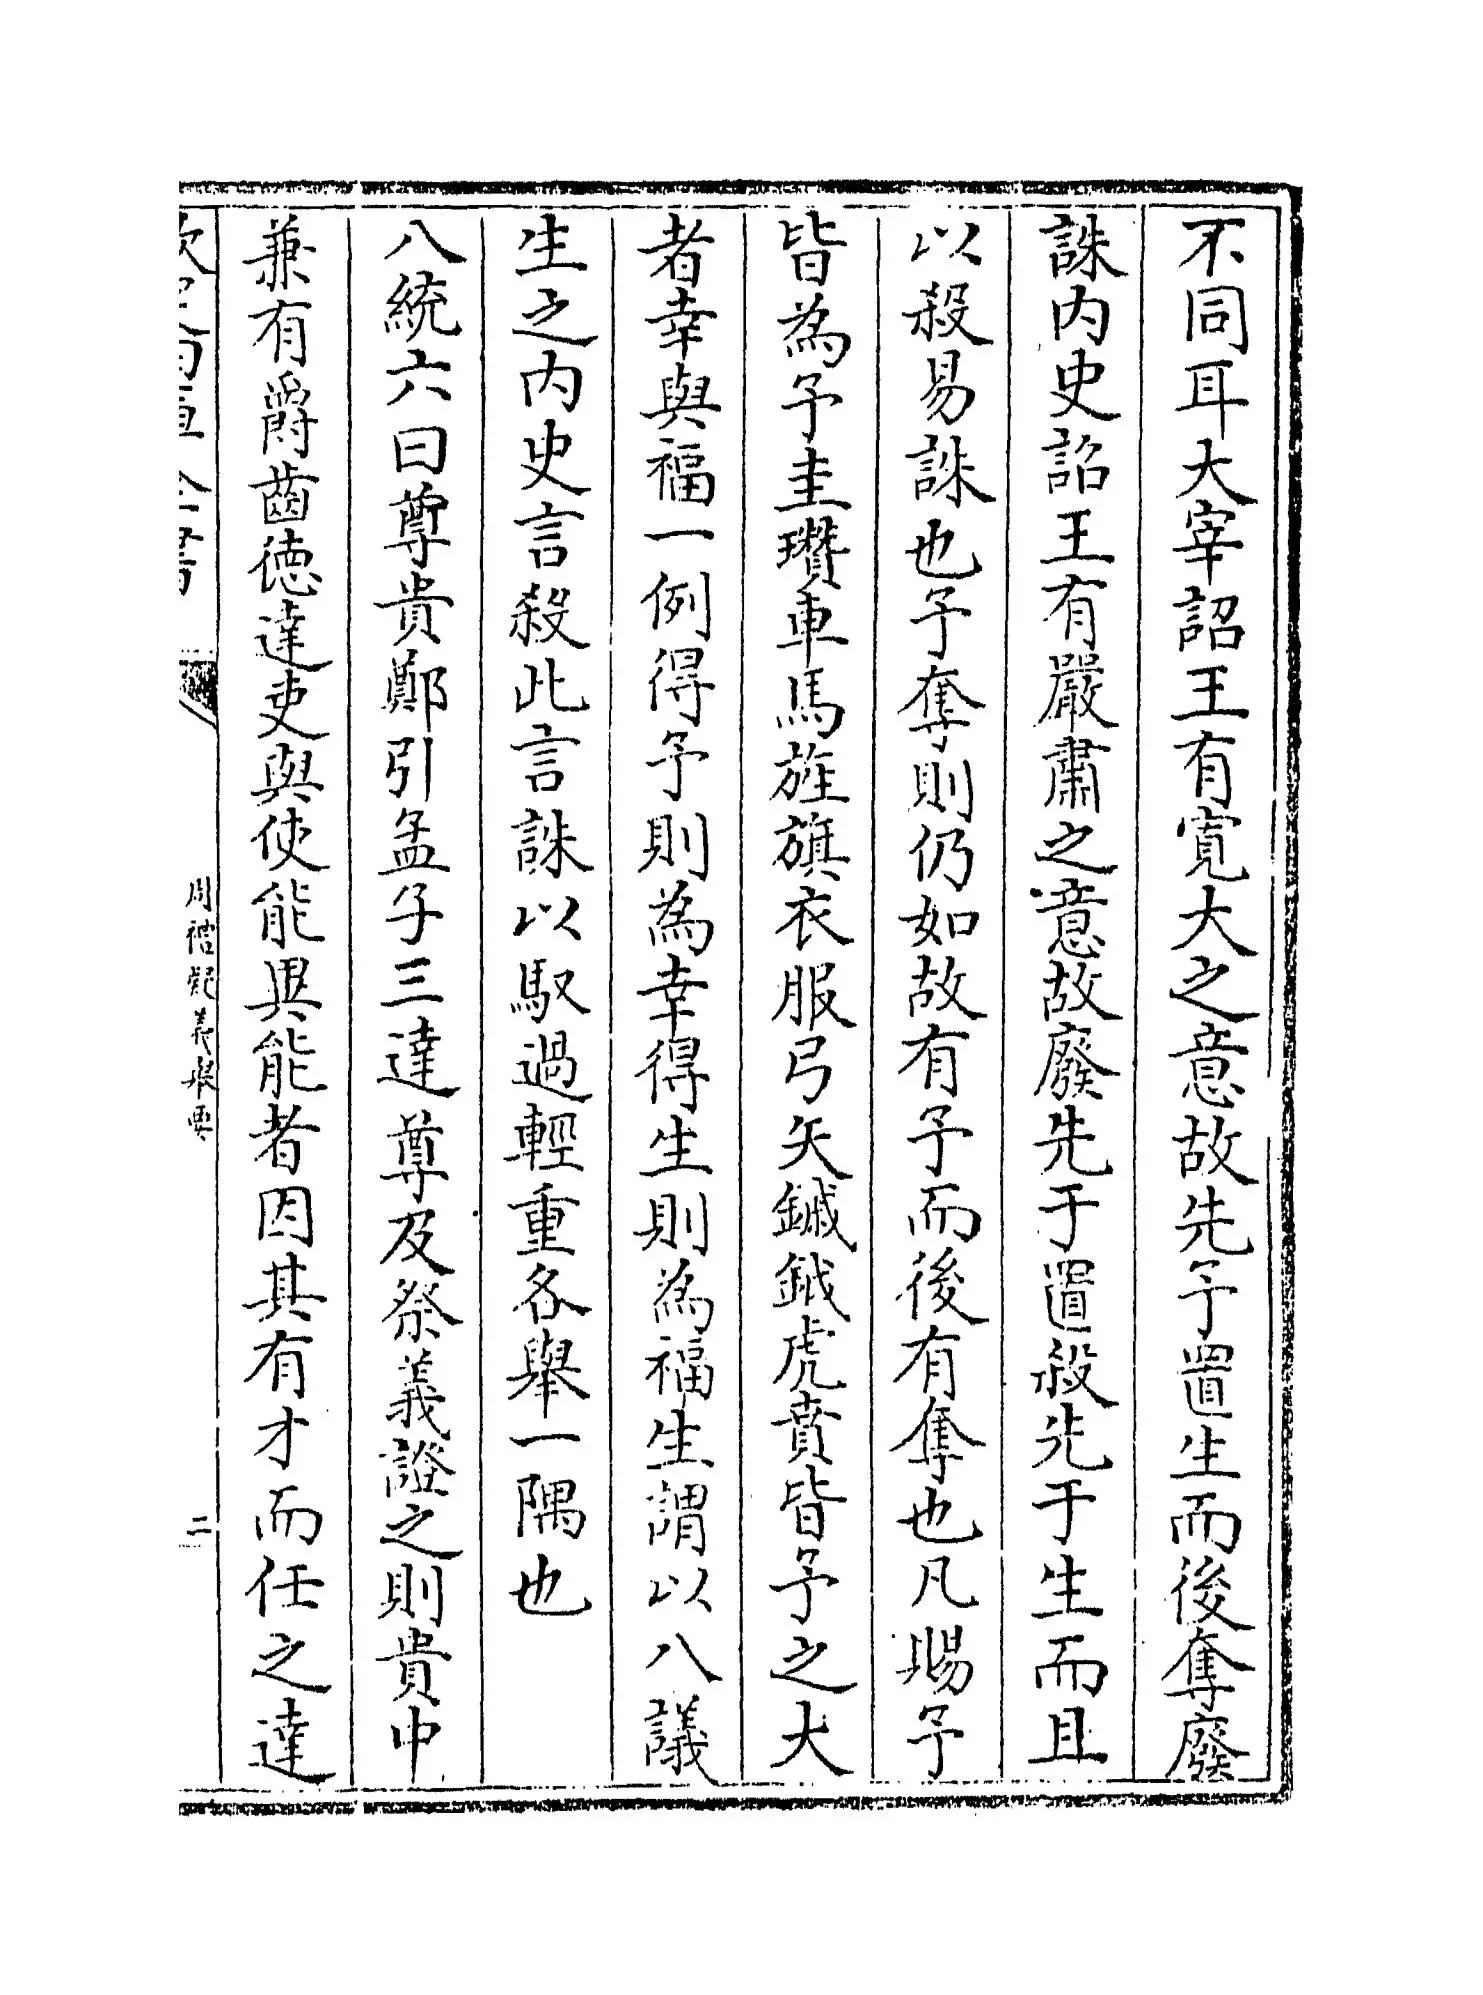 不同耳大宰詔王有寛大之意故先予置生而後奪廢
誅内史詔王有嚴肅之意故廢先于置殺先于生而且
以殺易誅也予奪則仍如故有予而後有奪也凡賜予
皆為予圭瓚車馬旌旗衣服弓矢鏚鉞虎賁皆予之大
者幸與福一例得予則為幸得生則為福生謂以八議
生之内史言殺此言誅以馭過輕重各舉一隅也
八統六曰尊貴鄭引孟子三達尊及祭義證之則貴中
兼有爵齒德達吏與使能異能者因其有才而任之達
欽定四庫全書
周禮疑義舉要
二